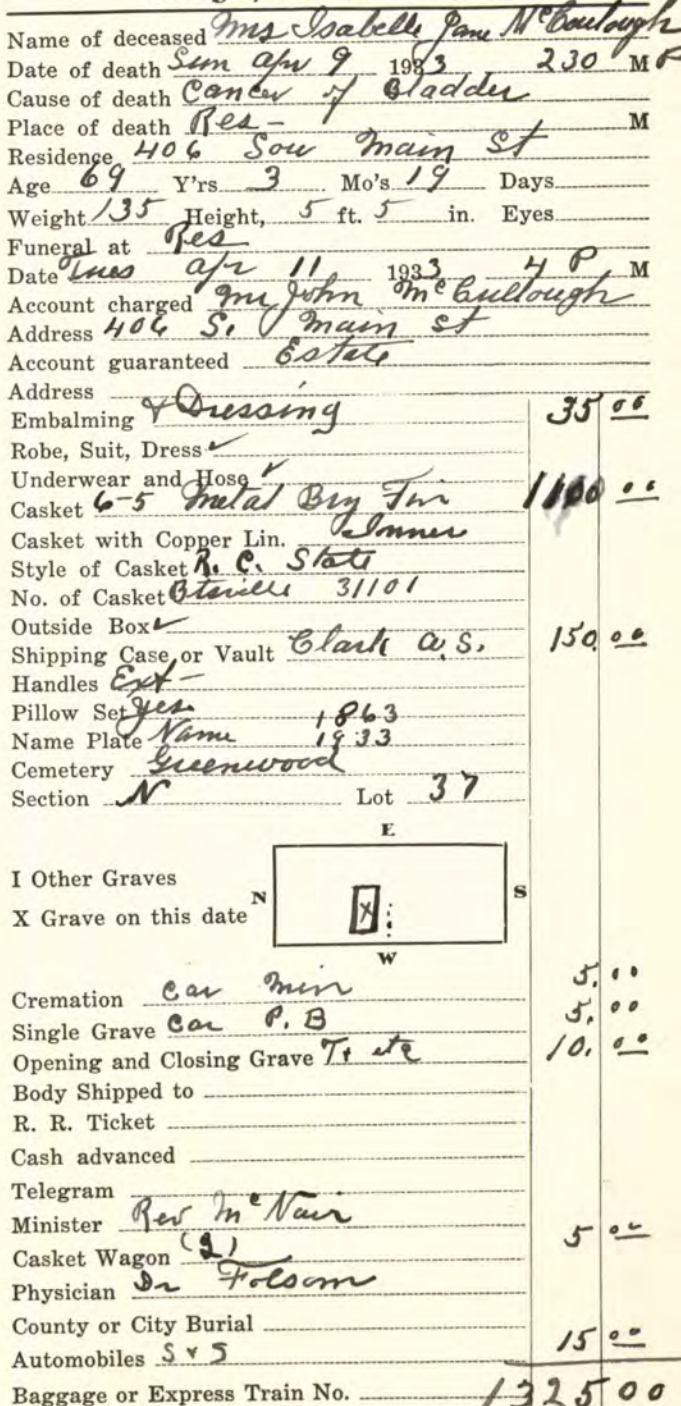 Name of deceased Mrs Isabelle Jane McCoulough
Date of death Sun Apr 9 1933 230 M P
Cause of death Cancer of Bladder
Place of death Res - M
Residence 406 Sou Main St
Age 69 Y'rs 3 Mo's 19 Days
Weight 135 Height, 5 ft. 5 in. Eyes
Funeral at Res
Date Tues Apr 11 1933 4 P M
Account charged Mr John McCullough
Address 406 S. Main St
Account guaranteed Estate
Address
Embalming & Dressing 35 00
Robe, Suit, Dress ✓
Underwear and Hose ✓
Casket 6-5 Metal Brz Fin 1100 00
Casket with Copper Lin. Inner
Style of Casket R. C. State
No. of Casket 31101
Outside Box ✓
Shipping Case or Vault Clark A.S. 150.00
Handles Ext -
Pillow Set Yes 1863
Name Plate Name 1933
Cemetery Greenwood
Section N Lot 37
E
I Other Graves
N S
X Grave on this date X
W
Cremation Car Min 5.00
Single Grave Car P. B 5.00
Opening and Closing Grave Tt etc 10.00
Body Shipped to
R. R. Ticket
Cash advanced
Telegram
Minister Rev McNair
Casket Wagon (2) 5 00
Physician Dr Folsom
County or City Burial
Automobiles S & S 15 00
Baggage or Express Train No. 1325 00